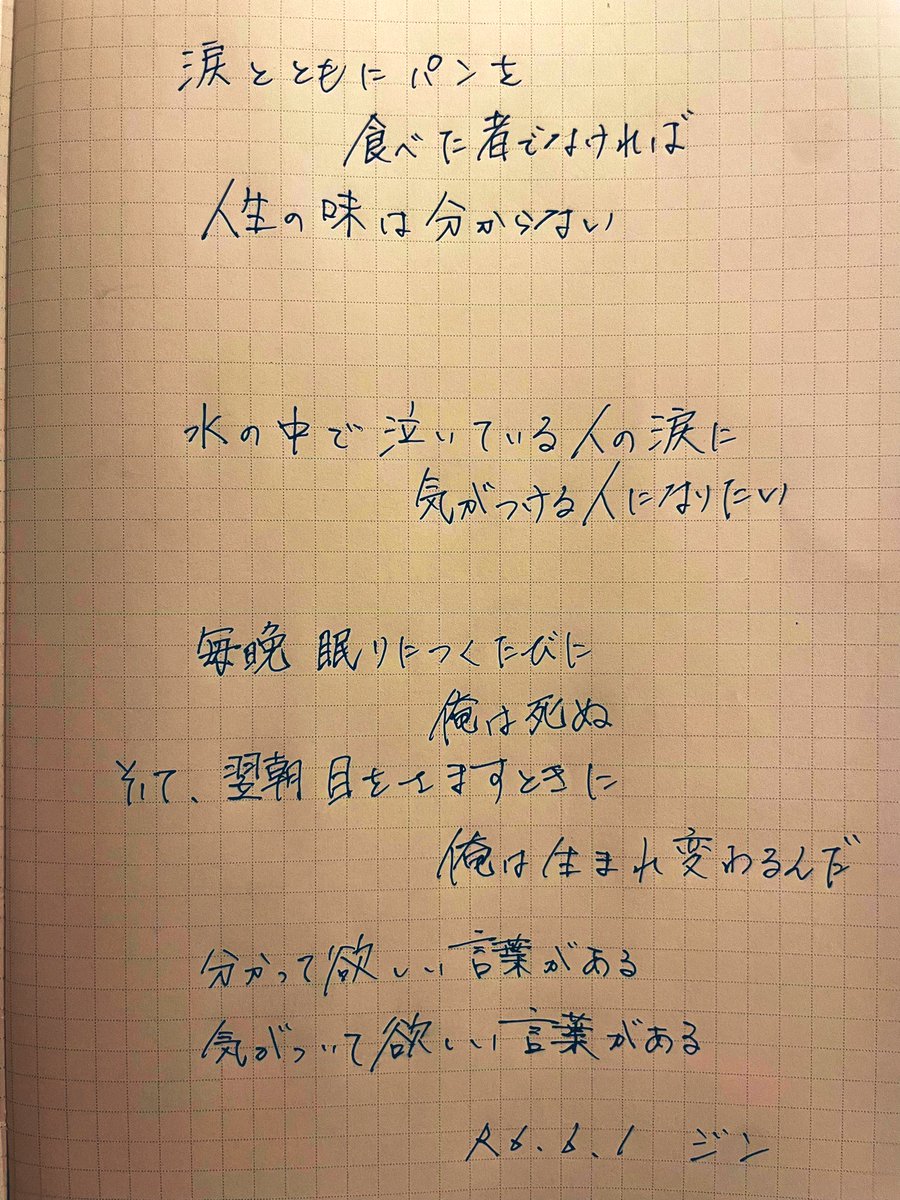 涙とともにパンを
食べた者でなければ
人生の味は分からない
水の中で泣いている人の涙に
気がつける人になりたい
毎晩 眠りにつくたびに
俺は死ぬ
そして、翌朝 目をさますときに
俺は生まれ変わるんだ
分かって欲しい言葉がある
気がついて欲しい言葉がある
R6.6.1 ジン